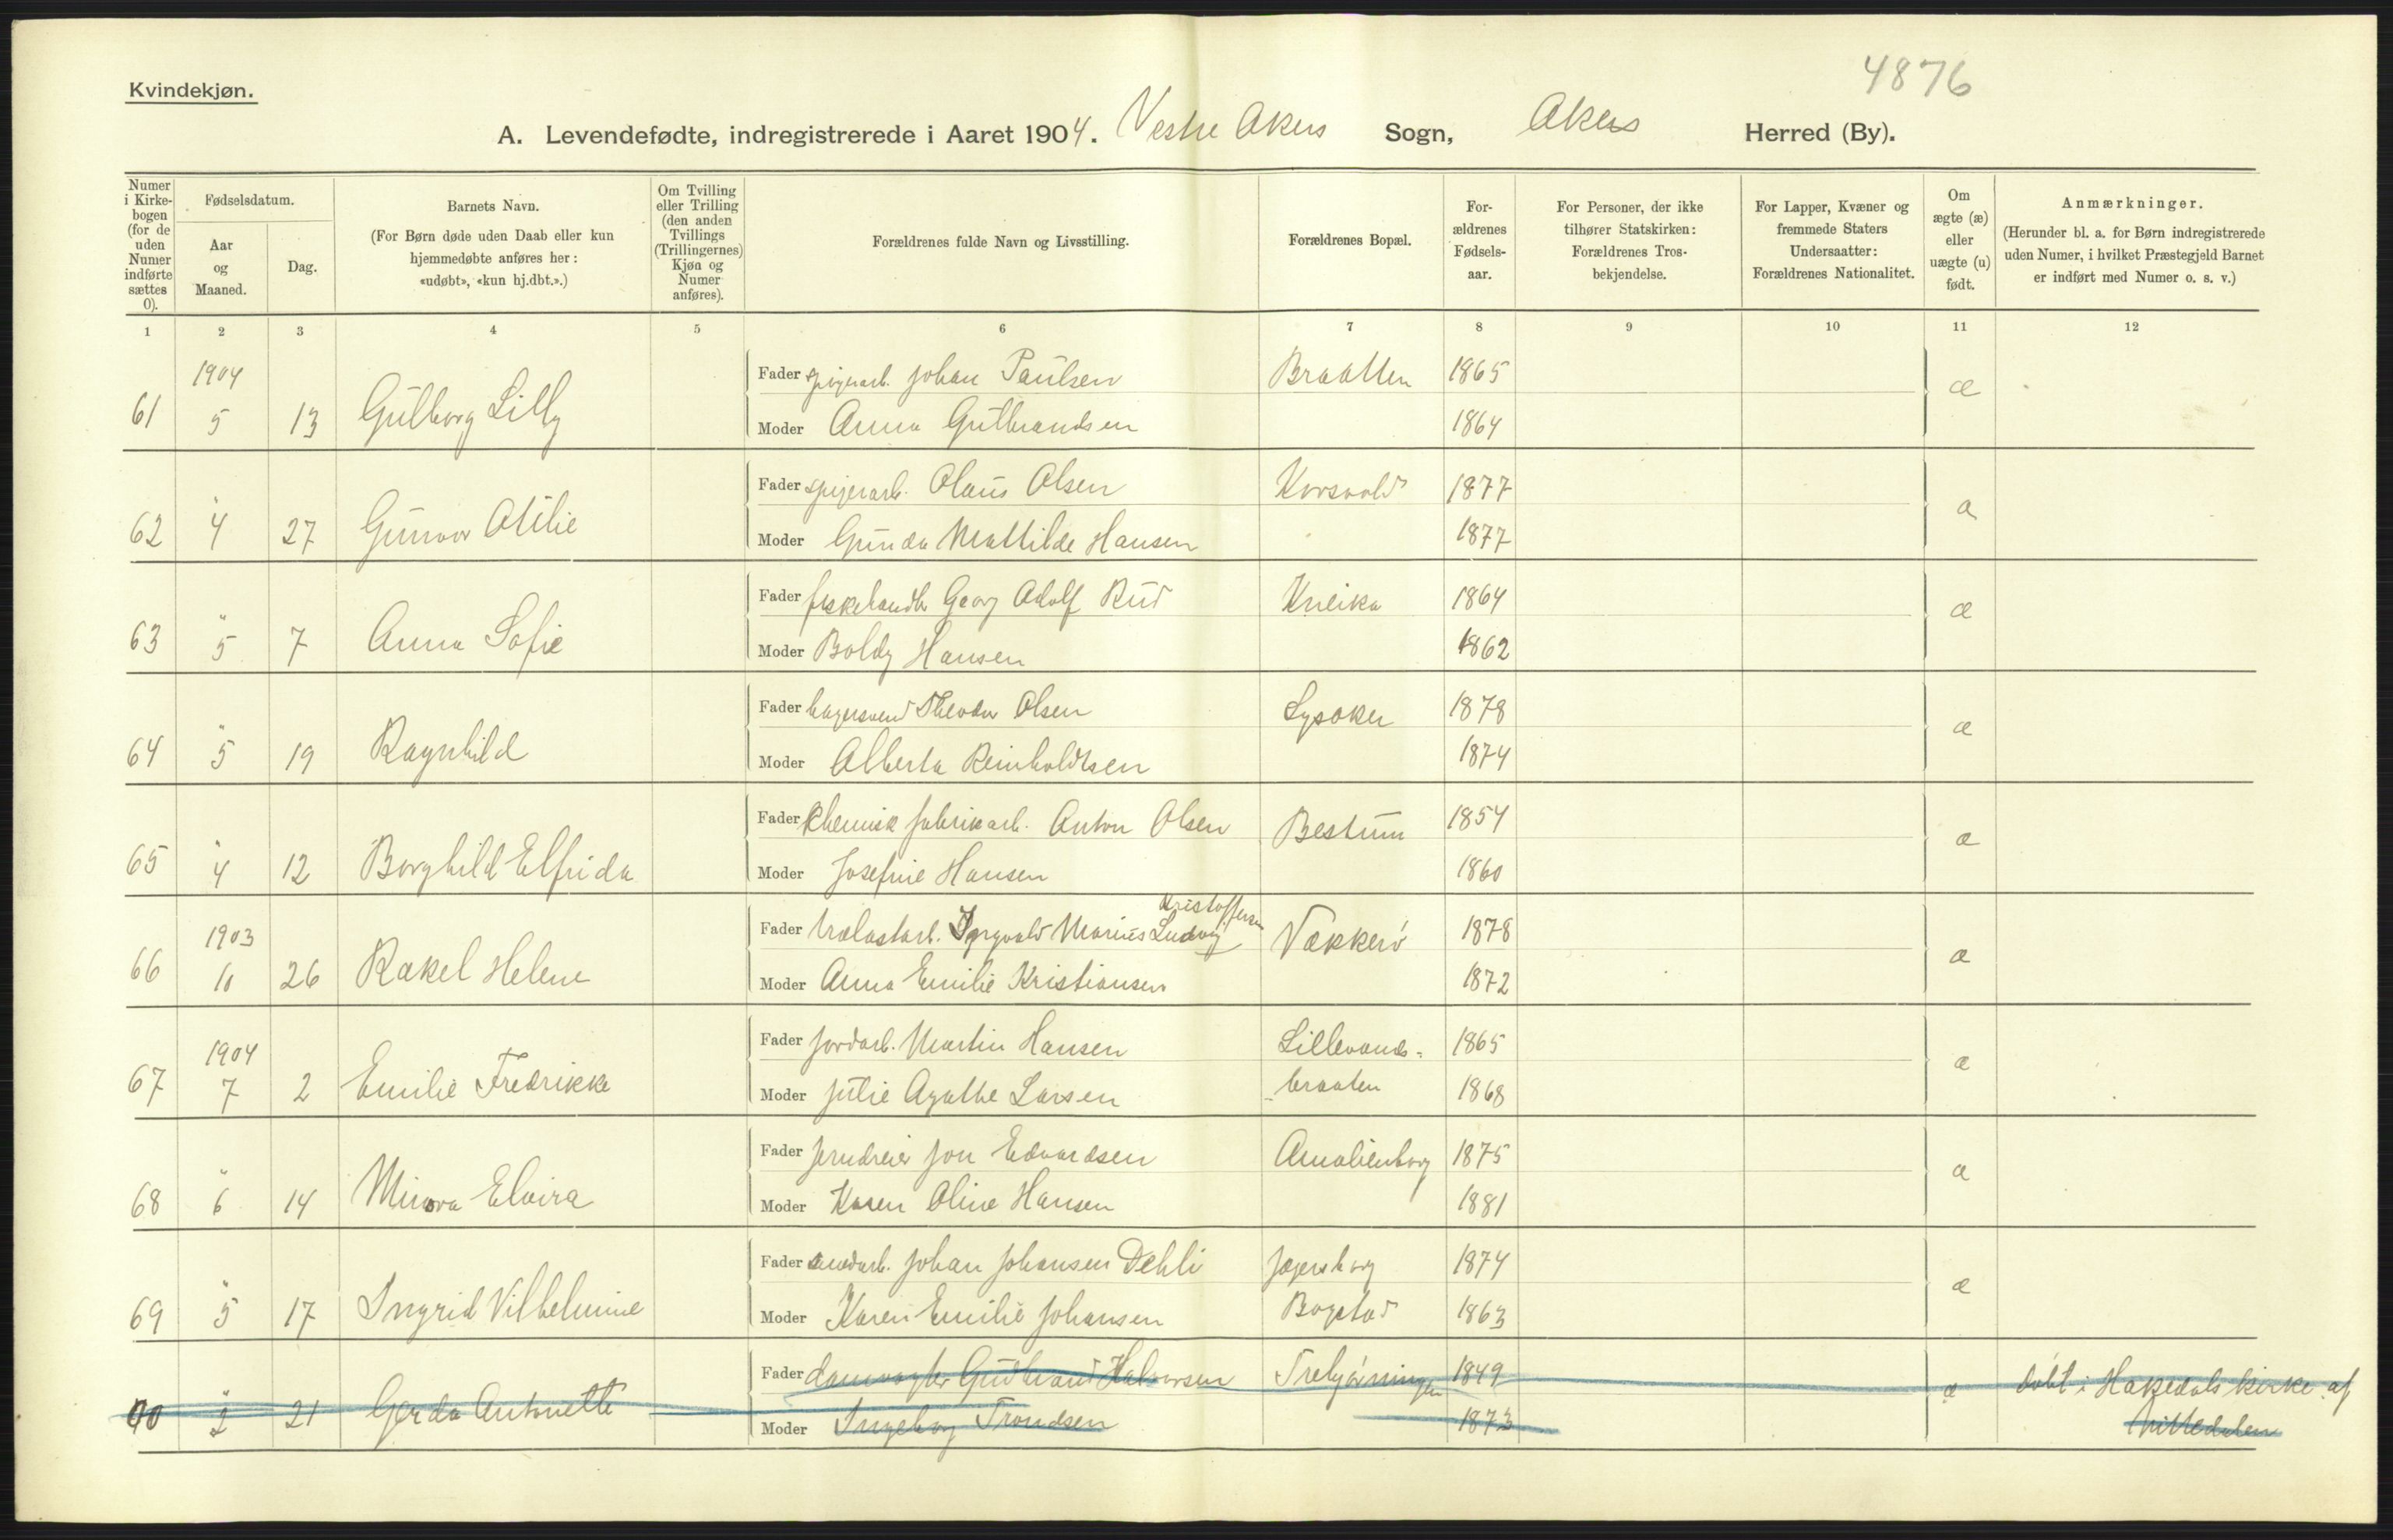 4876
Kvindekjøn.
A. Levendefødte, indregistrerede i Aaret 1904. Vestre Akers Sogn, Akers Herred (By).
Numer i Kirkebogen (for de uden Numer indførte sættes 0).
Fødselsdatum.
Aar og Maaned.
Dag.
Barnets Navn.
(For Børn døde uden Daab eller kun hjemmedøbte anføres her: «udøbt», «kun hj.dbt.».)
Om Tvilling eller Trilling (den anden Tvillings (Trillingernes) Kjøn og Numer anføres).
Forældrenes fulde Navn og Livsstilling.
Forældrenes Bopæl.
Forældrenes Fødselsaar.
For Personer, der ikke tilhører Statskirken: Forældrenes Trosbekjendelse.
For Lapper, Kvæner og fremmede Staters Undersaatter: Forældrenes Nationalitet.
Om ægte (æ) eller uægte (u) født.
Anmærkninger.
(Herunder bl. a. for Børn indregistrerede uden Numer, i hvilket Præstegjeld Barnet er indført med Numer o. s. v.)
1 2 3 4 5 6 7 8 9 10 11 12
61 1904 5 13 Gulborg Lilly Fader spigerarb. Johan Paulsen Braatten 1865 æ
Moder Anna Gulbrandsen 1864
62 " 4 27 Gunvor Otilie Fader spigerarb. Olaus Olsen Korsvold 1877 æ
Moder Gunda Mathilde Hansen 1877
63 " 5 7 Anna Sofie Fader fiskehandler Georg Adolf Rud Kneika 1864 æ
Moder Boldy Hansen 1862
64 " 5 19 Ragnhild Fader bagersvend Theodor Olsen Lysaker 1878 æ
Moder Alberta Reinholdtsen 1874
65 " 4 12 Borghild Elfrida Fader Khemisk fabrikarb. Anton Olsen Bestum 1854 æ
Moder Josefine Hansen 1860
66 1903 10 26 Rakel Helene Fader trælastarb. Yngvald Marius Ludvig Kristoffersen Vækkerö 1878 æ
Moder Anna Emilie Kristiansen 1872
67 1904 7 2 Emilie Fredrikke Fader jordarb. Martin Hansen Lillevands- 1865 æ
Moder Julie Agathe Larsen braaten 1868
68 " 6 14 Minora Elvira Fader jerndreier Jon Edvardsen Amalienborg 1875 æ
Moder Karen Oline Hansen 1881
69 " 5 17 Ingrid Vilhelmine Fader Johan Johansen Dehli Jægersborg 1874 æ
Moder Karen Emilie Johansen Bogstad 1863
0 " 2 21 Gerda Antonette Fader damvogter Gudbrand Halvorsen Trehjørningen 1849 æ döbt i Hakedals kirke af
Moder Ingeborg Trondsen 1873 Nittedalen